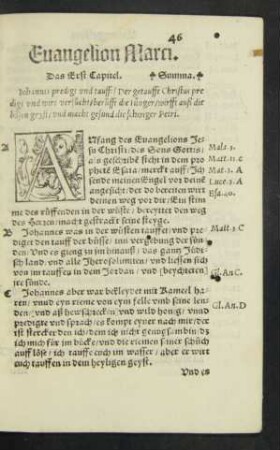 46
Euangelion Marci.
Das Erst Capitel. Summa.
Johannes predigt vnd taufft/ Der getaufft Christus pre
digt vnd wirt versůcht/berüfft die jünger/wirfft auß die
bösen geyst/ vnd macht gesund die schwiger Petri.
ANfang des Euangelions Je- Mal.3.
su Christi/ des Suns Gottis/ Matt.11.c
als geschribē steht in dem pro- Mat.1.A
pheten Esaia/ merckt auff/ Ich Luce.1.A
sende meinen Engel vor deinē Esa.40.
angesicht/ der do bereiten wirt
deinen weg vor dir/ Ein stim
me des rüffenden in der wüste/ bereyttet den weg
des Herrn/ macht gestrackt seine steyge.
B Johannes was in der wüsten tauffen/ vnd pre Matt.3.C
diget den tauff der bůsse/ zur vergebung der sün
den/ Vnd es gieng zu im hinauß/ das gantz Jüdi-
sch land/ vnd alle Iherosolimiten/ vnd liessen sich
von im tauffen in dem Jordan/ vnd beychten Gl.An.C.
ire sünde.
C Johannes aber war bekleydet mit Kameel ha
ren/ vnud eyn rieme von eyn felle vmb seine len Gl.An.D
den/ vnd aß hewschrecken/ vnd wild honig/ vnd
predigte vnd sprach/ es kompt eyner nach mir/ der
ist stercker den ich/ dem ich nicht genugsam bin/ dz
ich mich für im bücke/ vnd die riemen seiner schůch
auff löse/ ich tauffe euch im wasser/ aber er wirt
euch tauffen in dem heyligen geyst.
Vnd es